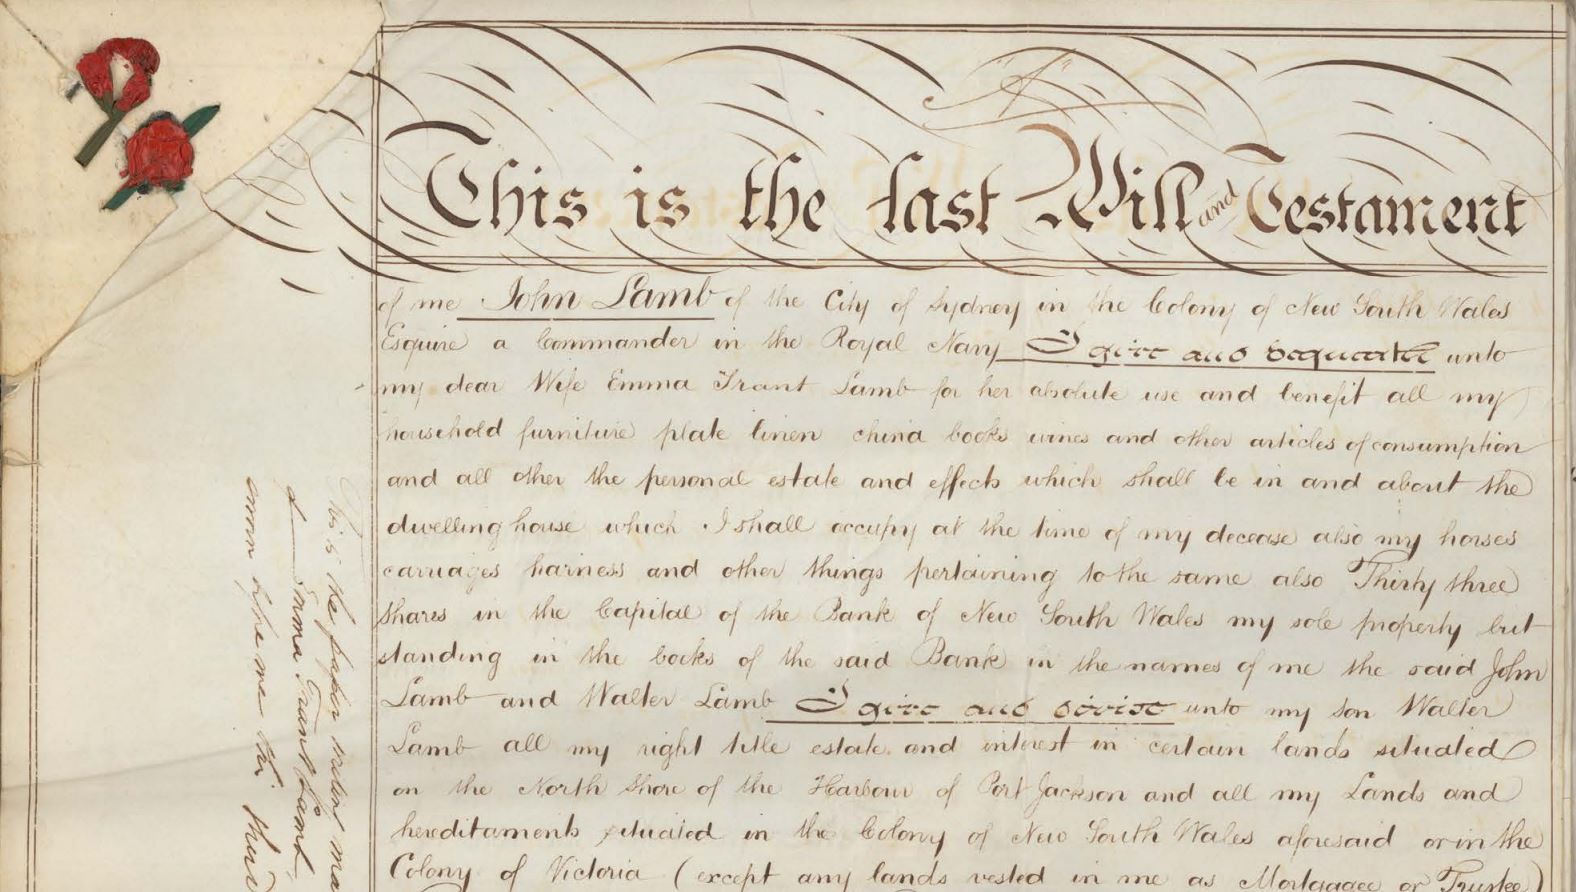 "A"
This is the last Will and Testament
of me John Lamb of the City of Sydney in the Colony of New South Wales
Esquire a Commander in the Royal Navy I give and bequeath unto
my dear Wife Emma Trant Lamb for her absolute use and benefit all my
household furniture plate linen china books wines and other articles of consumption
and all other the personal estate and effects which shall be in and about the
dwelling house which I shall occupy at the time of my decease also my horses
carriages harness and other things pertaining to the same also Thirty three
shares in the Capital of the Bank of New South Wales my sole property but
standing in the books of the said Bank in the names of me the said John
Lamb and Walter Lamb I give and devise unto my son Walter
Lamb all my right title estate and interest in certain lands situated
on the North Shore of the Harbour of Port Jackson and all my Lands and
hereditaments situated in the Colony of New South Wales aforesaid or in the
Colony of Victoria (except any lands vested in me as Mortgagee or Trustee)
This is the paper writing ma
Emma Trant Lamb
sworn before me this third